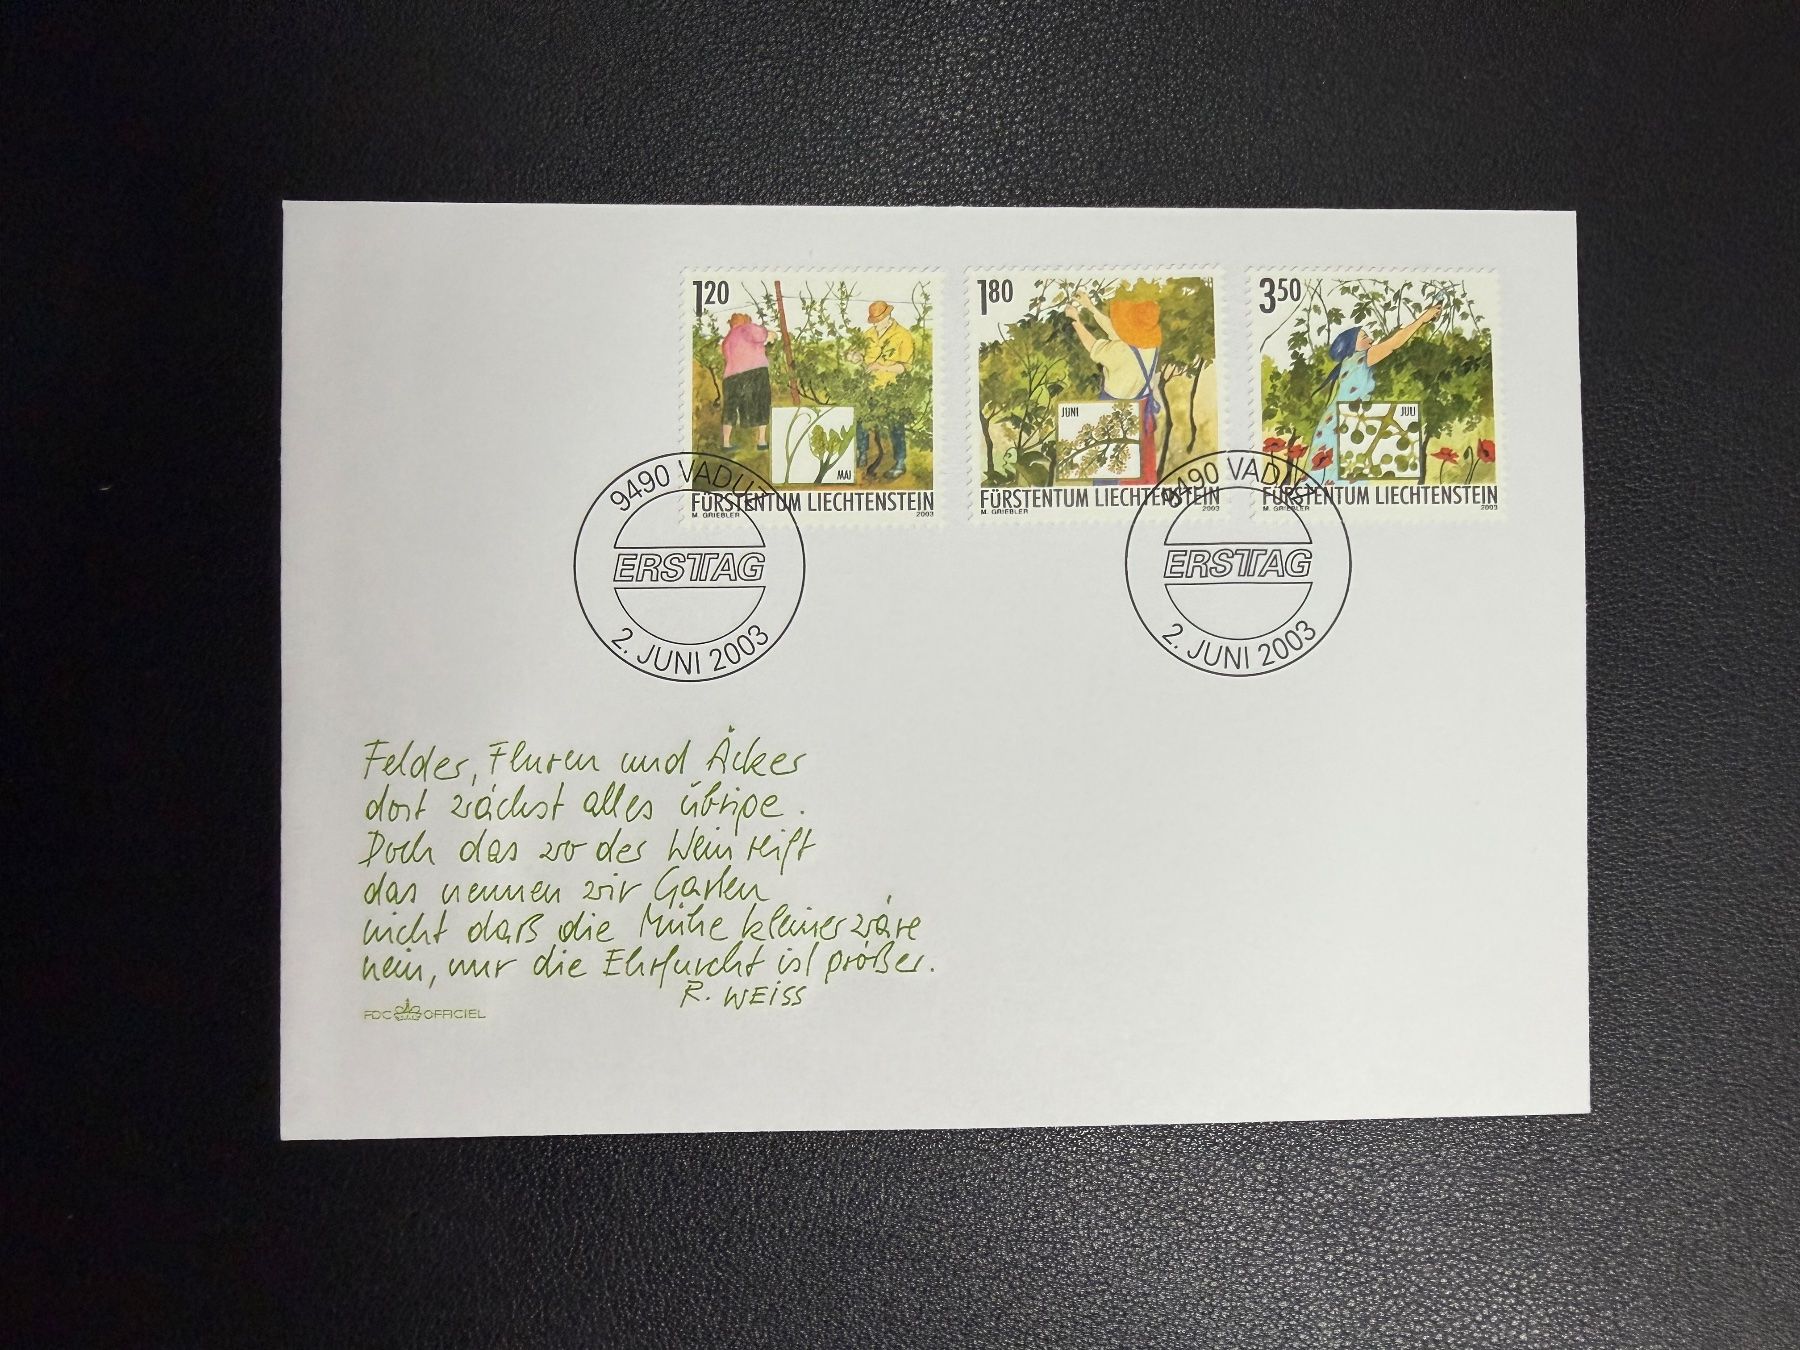 120
MAI
FÜRSTENTUM LIECHTENSTEIN
M. GRIEBLER 2003
180
JUNI
FÜRSTENTUM LIECHTENSTEIN
M. GRIEBLER 2003
350
JULI
FÜRSTENTUM LIECHTENSTEIN
M. GRIEBLER 2003
9490 VADUZ
ERSTTAG
2. JUNI 2003
9490 VADUZ
ERSTTAG
2. JUNI 2003
Felder, Fluren und Äcker
dort wächst alles übrige.
Doch das wo der Wein reift
das nennen wir Garten
nicht daß die Mühe kleiner wäre
nein, nur die Ehrfurcht ist größer.
R. WEISS
FDC OFFICIEL